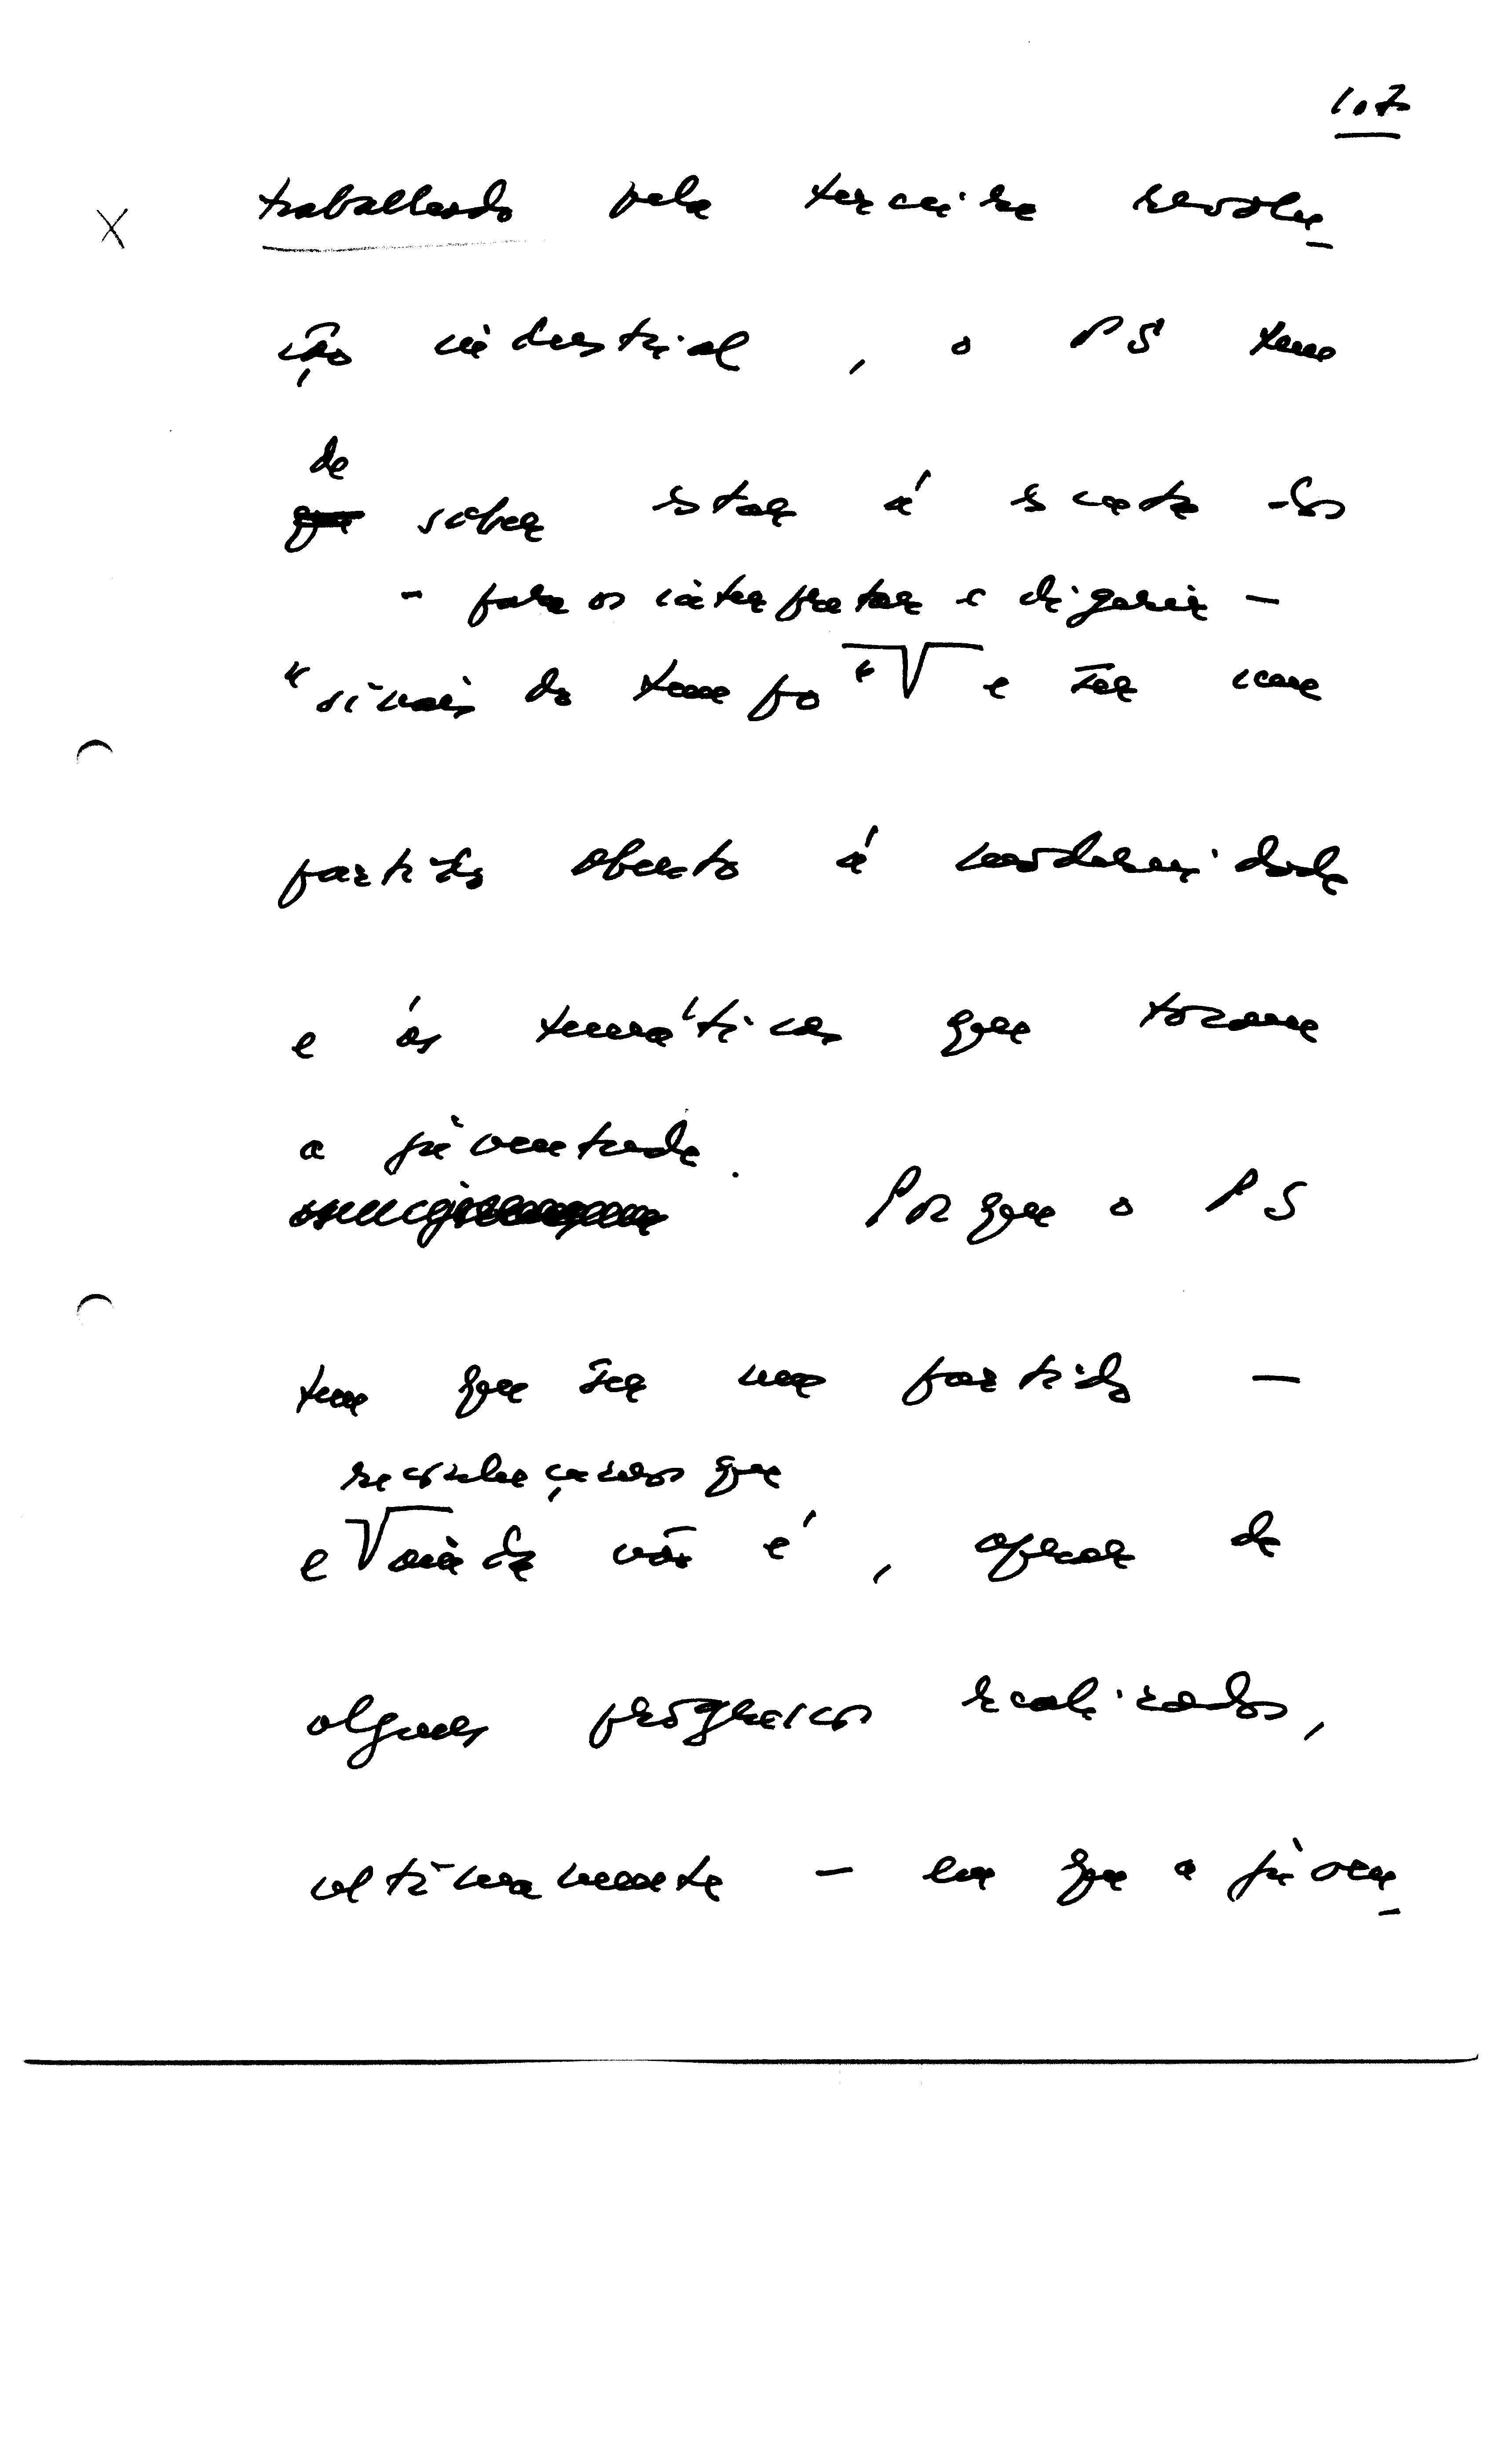 107
trabalhado pela terceira revolu-
ção industrial, o PS tem
de
que saber estar á escuta dos
- para os interpretar e digerir -
"sinais do tempo" e ser um
partido aberto á modernidade
e ás temáticas que tocam
a juventude.
Porque o PS
tem que ser um partido —
reconheçamos que
e ainda não é, apesar de
alguns progressos realizados,
ultimamente — em que a juven-